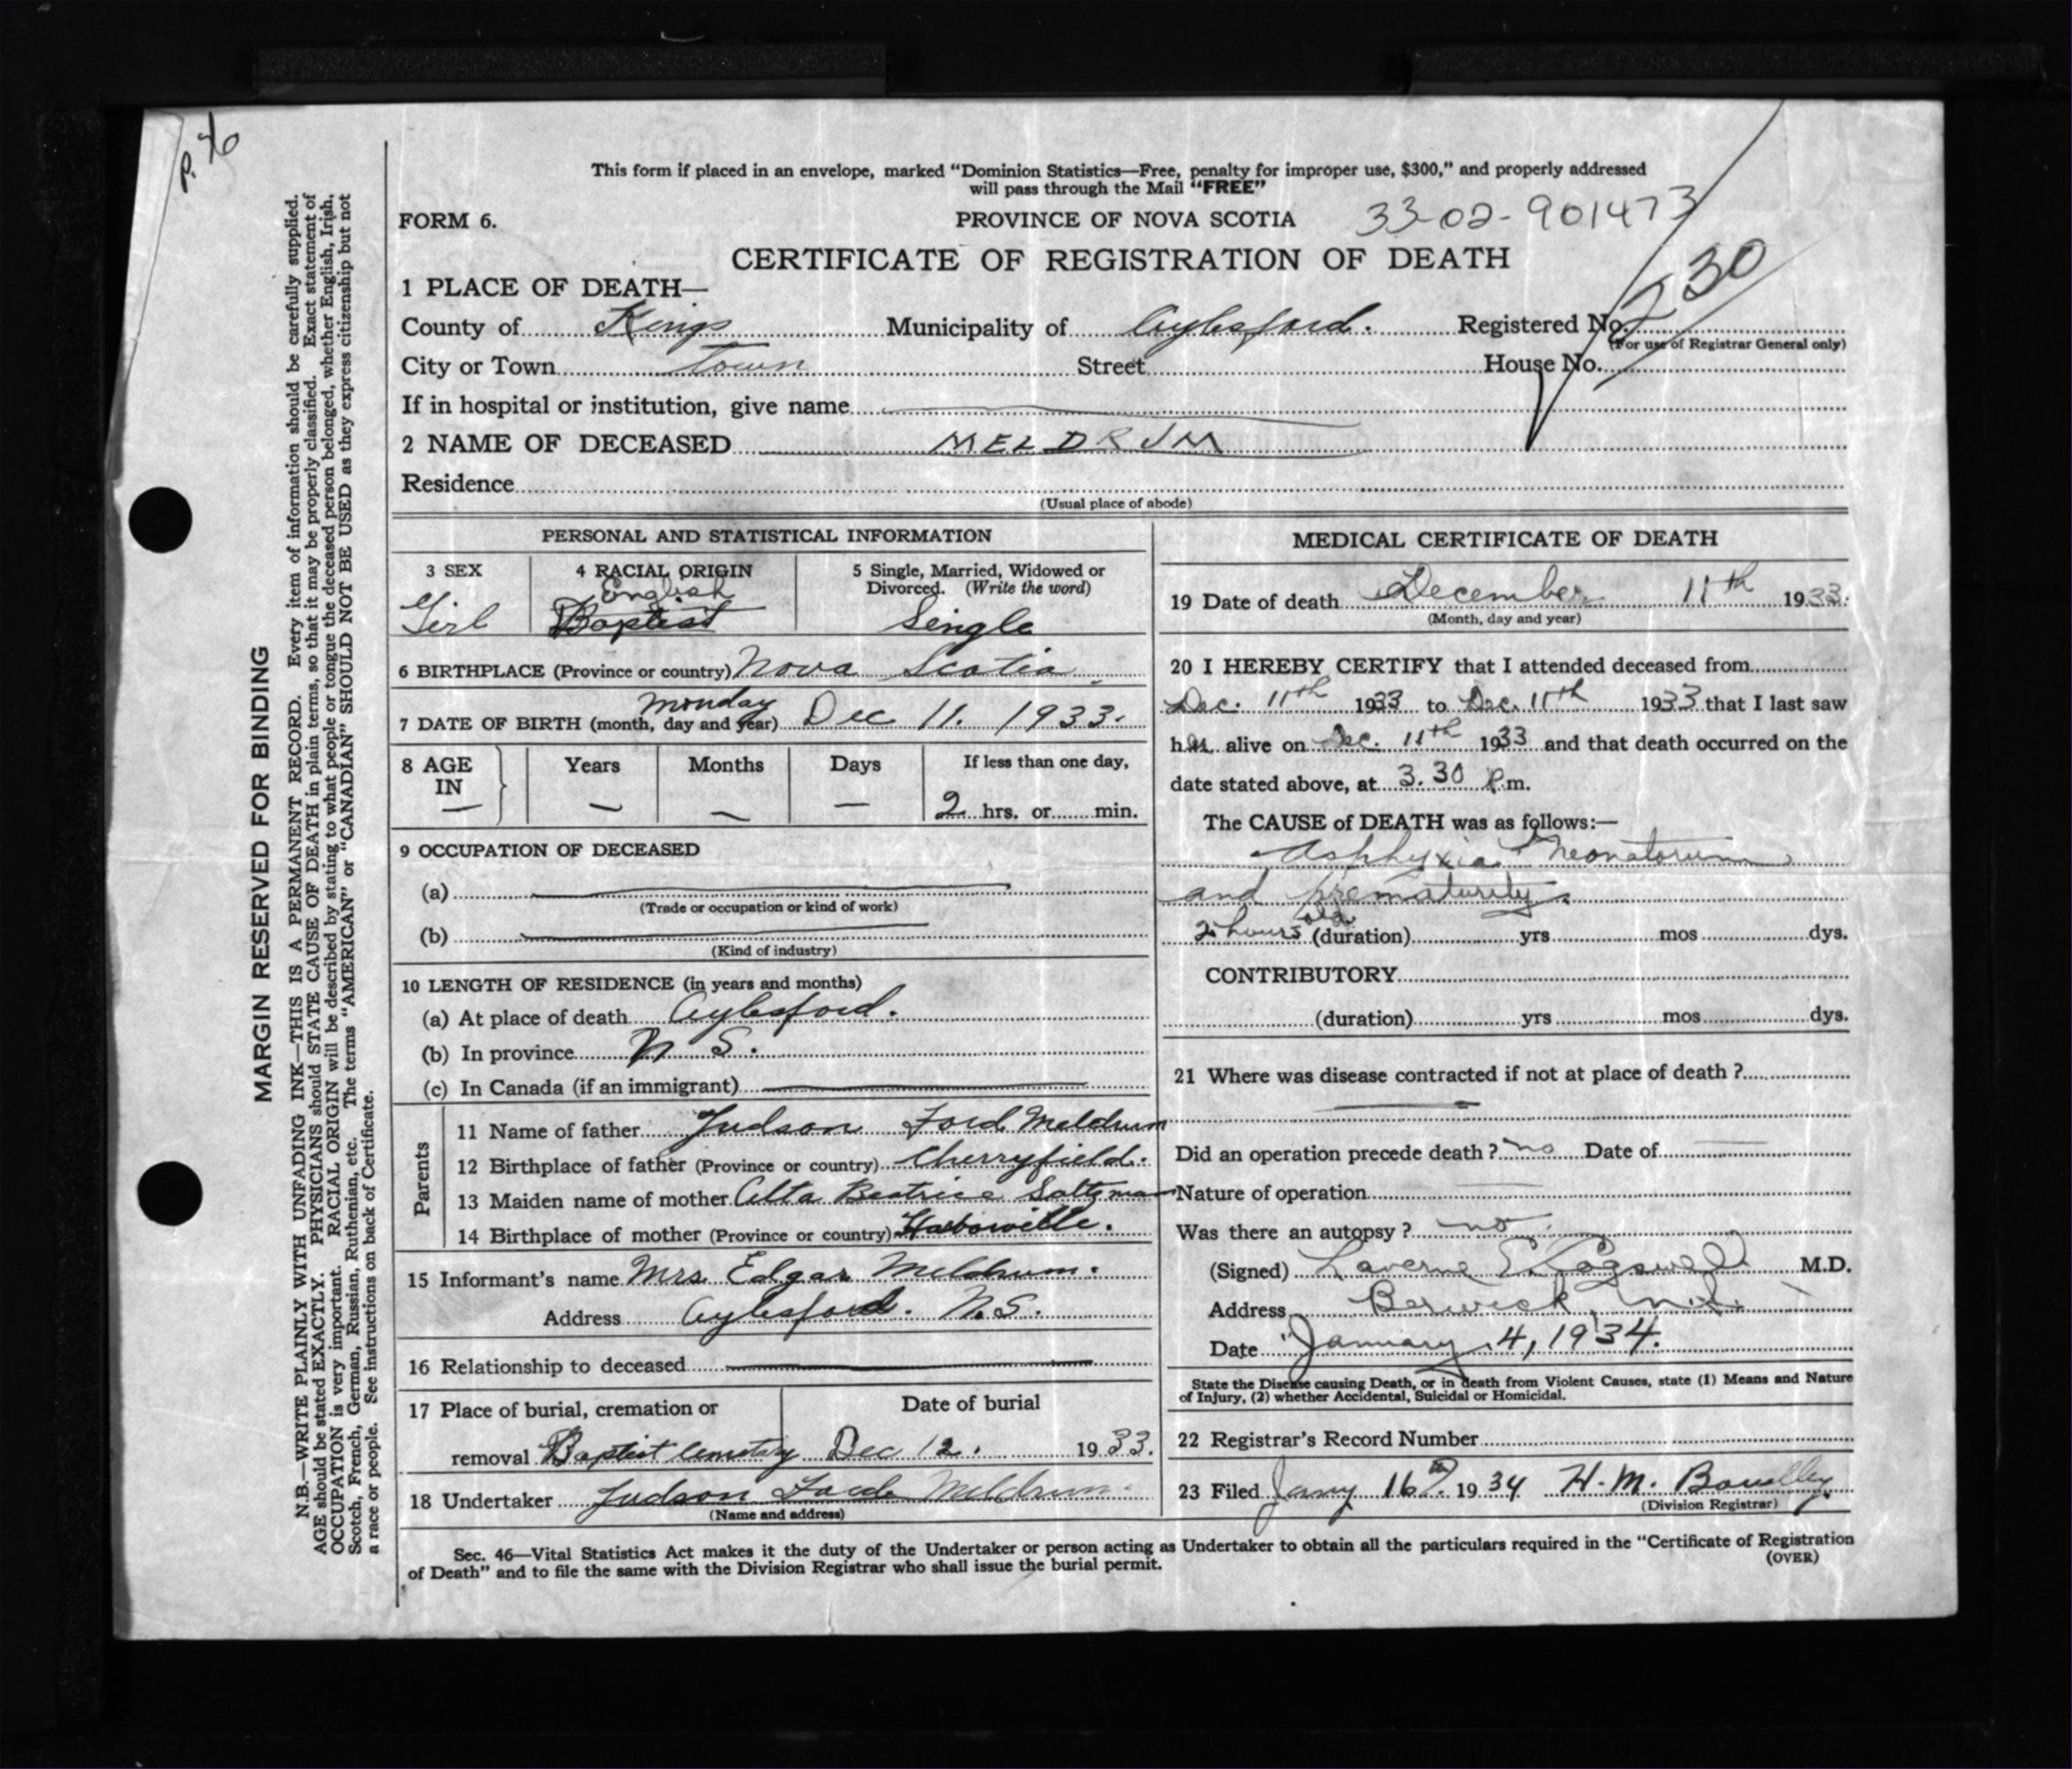 P. 76
This form if placed in an envelope, marked “Dominion Statistics—Free, penalty for improper use, $300,” and properly addressed
will pass through the Mail “FREE”
FORM 6.
PROVINCE OF NOVA SCOTIA 33-02-901473
CERTIFICATE OF REGISTRATION OF DEATH
230
1 PLACE OF DEATH—
County of Kings Municipality of Aylesford. Registered No.
(For use of Registrar General only)
City or Town Town Street House No.
If in hospital or institution, give name
2 NAME OF DECEASED MELDRUM
Residence
(Usual place of abode)
PERSONAL AND STATISTICAL INFORMATION
3 SEX
Girl
4 RACIAL ORIGIN
English
Baptist
5 Single, Married, Widowed or
Divorced. (Write the word)
Single
6 BIRTHPLACE (Province or country) Nova Scotia.
7 DATE OF BIRTH (month, day and year) Monday Dec 11. 1933.
8 AGE IN — Years — Months — Days —
If less than one day,
2 hrs. or min.
9 OCCUPATION OF DECEASED
(a)
(Trade or occupation or kind of work)
(b)
(Kind of industry)
10 LENGTH OF RESIDENCE (in years and months)
(a) At place of death Aylesford.
(b) In province N S.
(c) In Canada (if an immigrant)
Parents
11 Name of father Judson Ford Meldrum
12 Birthplace of father (Province or country) Cherryfield.
13 Maiden name of mother Alta Beatrice Saltzman
14 Birthplace of mother (Province or country) Harborville.
15 Informant's name Mrs. Edgar Meldrum.
Address Aylesford. N.S.
16 Relationship to deceased
17 Place of burial, cremation or
removal Baptist Cemetery
Date of burial
Dec 12. 1933.
18 Undertaker Judson Meldrum
(Name and address)
MEDICAL CERTIFICATE OF DEATH
19 Date of death December 11th 1933.
(Month, day and year)
20 I HEREBY CERTIFY that I attended deceased from
Dec. 11th 1933 to Dec. 11th 1933 that I last saw
her alive on Dec. 11th 1933 and that death occurred on the
date stated above, at 3.30 P.m.
The CAUSE of DEATH was as follows:—
Asphyxia Neonatorum
and prematurity.
2 hours old (duration) yrs mos dys.
CONTRIBUTORY
(duration) yrs mos dys.
21 Where was disease contracted if not at place of death ?
Did an operation precede death ? no Date of
Nature of operation
Was there an autopsy ? no.
(Signed) Laverne E. Cogswell M.D.
Address Berwick, N.S.
Date January 4, 1934.
State the Disease causing Death, or in death from Violent Causes, state (1) Means and Nature
of Injury, (2) whether Accidental, Suicidal or Homicidal.
22 Registrar's Record Number
23 Filed Jany 16th 1934 H. M.
(Division Registrar)
Sec. 46—Vital Statistics Act makes it the duty of the Undertaker or person acting as Undertaker to obtain all the particulars required in the “Certificate of Registration
of Death” and to file the same with the Division Registrar who shall issue the burial permit.
(OVER)
MARGIN RESERVED FOR BINDING
N.B.—WRITE PLAINLY WITH UNFADING INK—THIS IS A PERMANENT RECORD. Every item of information should be carefully supplied.
AGE should be stated EXACTLY. PHYSICIANS should STATE CAUSE OF DEATH in plain terms, so that it may be properly classified. Exact statement of
OCCUPATION is very important. RACIAL ORIGIN will be described by stating to what people or tongue the deceased person belonged, whether English, Irish,
Scotch, French, German, Russian, Ruthenian, etc. The terms “AMERICAN” or “CANADIAN” SHOULD NOT BE USED as they express citizenship but not
a race or people. See instructions on back of Certificate.